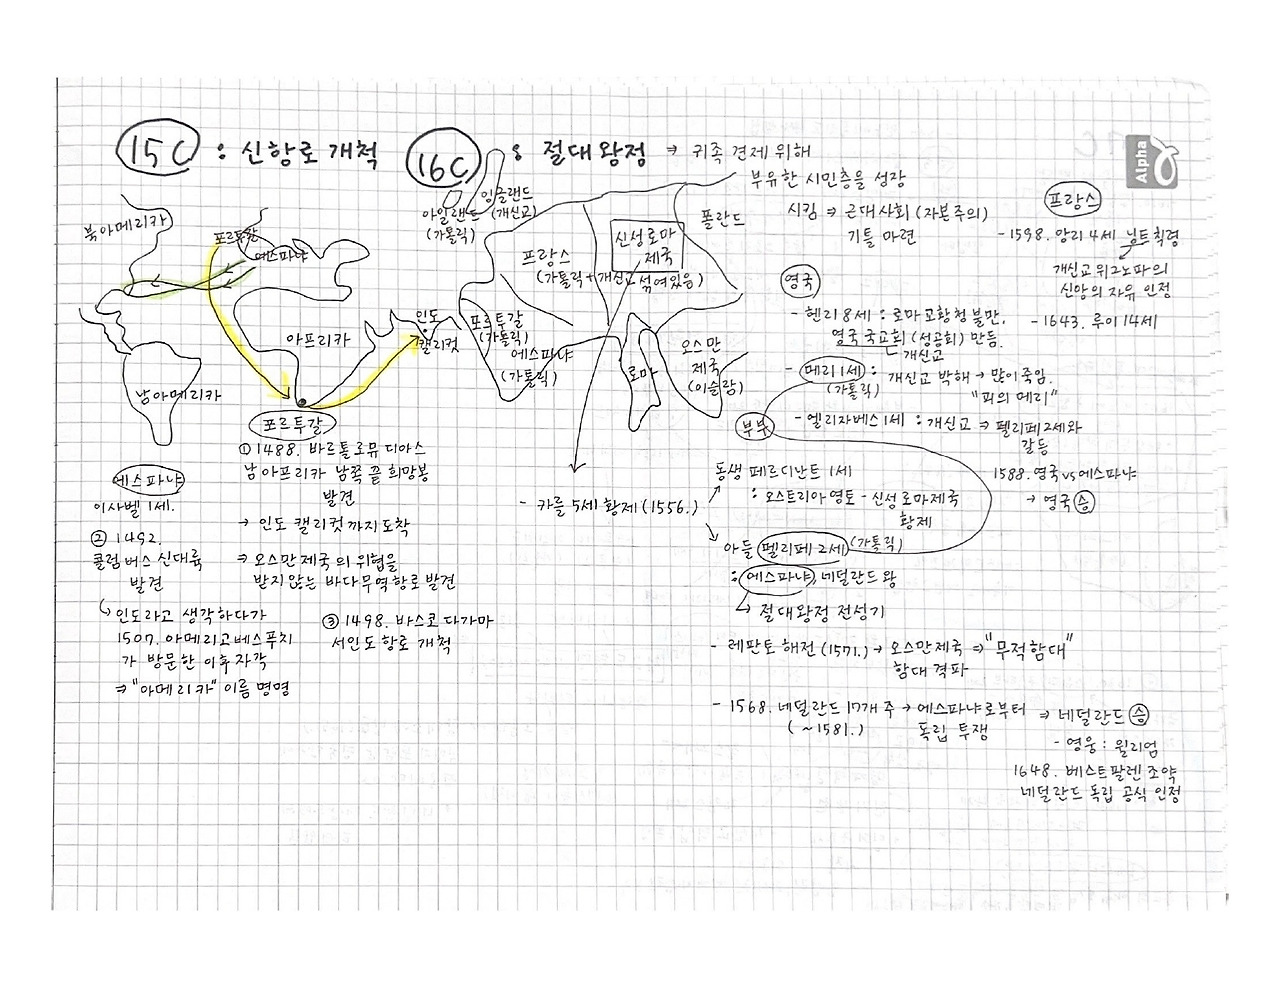 15C : 신항로 개척
북아메리카
포르투갈
에스파냐
아프리카
인도
캘리컷
남아메리카
포르투갈
① 1488. 바르톨로뮤 디아스
남아프리카 남쪽 끝 희망봉
발견
→ 인도 캘리컷까지 도착
⇒ 오스만 제국의 위협을
받지않는 바다무역항로 발견
③ 1498. 바스코 다가마
서인도 항로 개척
에스파냐
이사벨 1세.
② 1492.
콜럼버스 신대륙
발견
↳ 인도라고 생각하다가
1507. 아메리고베스푸치
가 방문한 이후 자각
⇒ "아메리카" 이름 명명
16C : 절대왕정 ⇒ 귀족 견제 위해
부유한 시민층을 성장
시킴 ⇒ 근대사회 (자본주의)
기틀 마련
잉글랜드
(개신교)
아일랜드
(가톨릭)
프랑스
(가톨릭 + 개신교 섞여있음)
신성로마
제국
폴란드
포르투갈
(가톨릭)
에스파냐
(가톨릭)
로마
오스만
제국
(이슬람)
영국
- 헨리 8세 : 로마 교황청 불만.
영국 국교회 (성공회) 만듬.
개신교
- 메리 1세 : 개신교 박해 → 많이 죽임.
(가톨릭)
"피의 메리"
- 엘리자베스 1세 : 개신교 ⇒ 펠리페 2세와
갈등
1588. 영국 vs 에스파냐
→ 영국 승
부부
프랑스
- 1598. 앙리 4세 낭트칙령
개신교 위그노파의
신앙의 자유 인정
- 1643. 루이 14세
- 카를 5세 황제 (1556.)
동생 페르디난트 1세
: 오스트리아 영토 - 신성로마제국
황제
아들 펠리페 2세 (가톨릭)
: 에스파냐, 네덜란드 왕
↳ 절대왕정 전성기
- 레판토 해전 (1571.) → 오스만제국 ⇒ "무적함대"
함대 격파
- 1568. 네덜란드 17개 주 → 에스파냐로부터 ⇒ 네덜란드 승
(~1581.) 독립 투쟁
- 영웅 : 윌리엄
1648. 베스트팔렌 조약
네덜란드 독립 공식 인정
Alpha